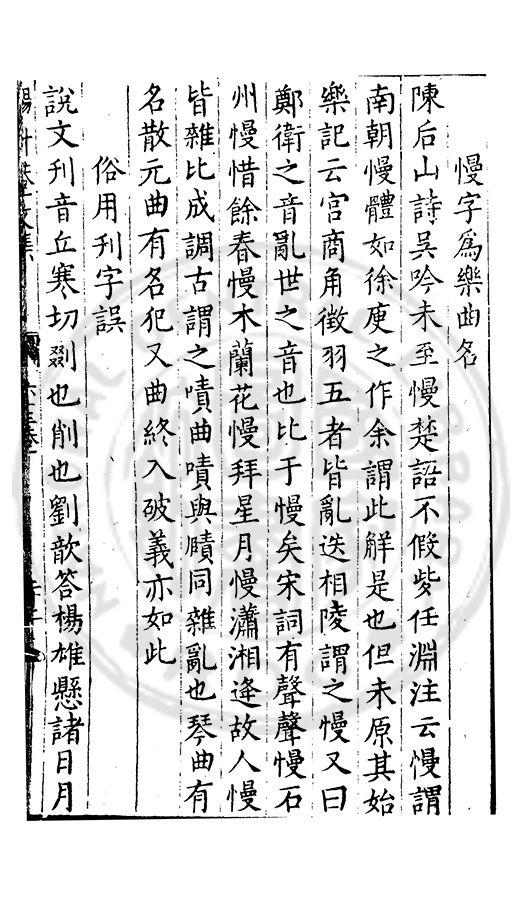 慢字爲樂曲名
陳后山詩吳吟未至慢楚語不假些任淵注云慢謂
南朝慢體如徐庾之作余謂此解是也但未原其始
樂記云宮商角徵羽五者皆亂迭相陵謂之慢又曰
鄭衛之音亂世之音也比于慢矣宋詞有聲聲慢石
州慢惜餘春慢木蘭花慢拜星月慢瀟湘逢故人慢
皆雜比成調古謂之嘖曲嘖與賾同雜亂也琴曲有
名散元曲有名犯又曲終入破義亦如此
俗用刋字誤
說文刋音丘寒切剟也削也劉歆答楊雄懸諸日月